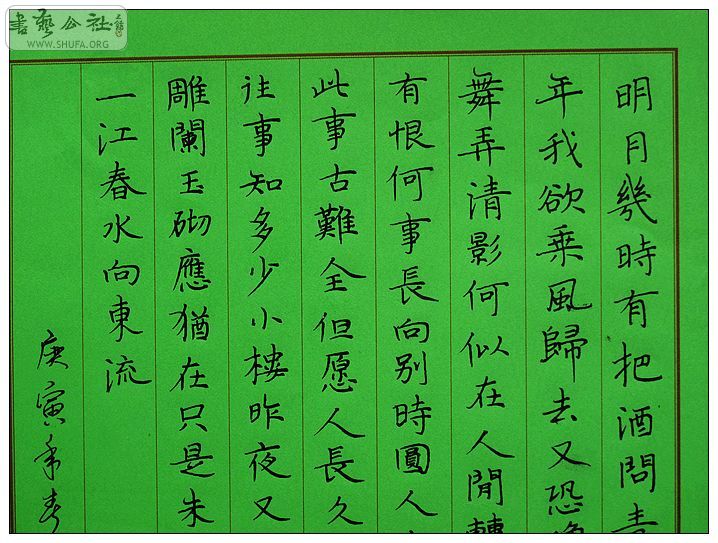 書藝公社
WWW.SHUFA.ORG
明月幾時有把酒問青
年我欲乗風歸去又恐
舞弄清影何似在人間轉
有恨何事長向别時圓人
此事古難全但愿人長久
往事知多少小樓昨夜又
雕闌玉砌應猶在只是朱
一江春水向東流
庚寅年春